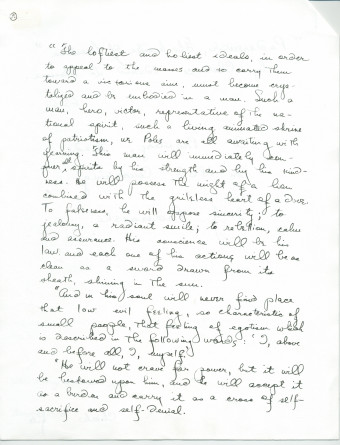 ③
" The loftiest and holiest ideals, in order
to appeal to the masses and so carry them
toward a victorious aim, must become crys-
tolized and be embodied in a man. Such a
man, hero, victor, representative of the na-
tional spirit, such a living animated shrine
of patriotism, we Poles are all awaiting with
yearning. This man will immediately con-
quer all spirits by his strength and by his kind-
ness. He will possess the might of a lion
combined with the guileless heart of a dove.
To falseness, he will oppose sincerity; to
jealousy, a radiant smile; to rebellion, calm
and assurance. His conscience will be his
law and each one of his actions will be as
clean as a sword drawn from its
sheath, shining in the sun.
"And in his soul will never find place
that low evil feeling, so characteristic of
small people, that feeling of egotism which
is described in the following words: 'I, above
and before all, I, myself'
"He will not crave for power, but it will
be bestowed upon him, and he will accept it
as a burden and carry it as a cross of self-
sacrifice and self-denial.